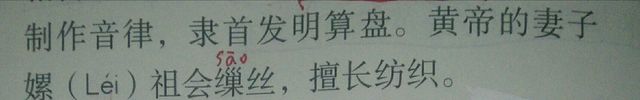 制作音律，隶首发明算盘。黄帝的妻子
sāo
嫘（Léi）祖会缫丝，擅长纺织。